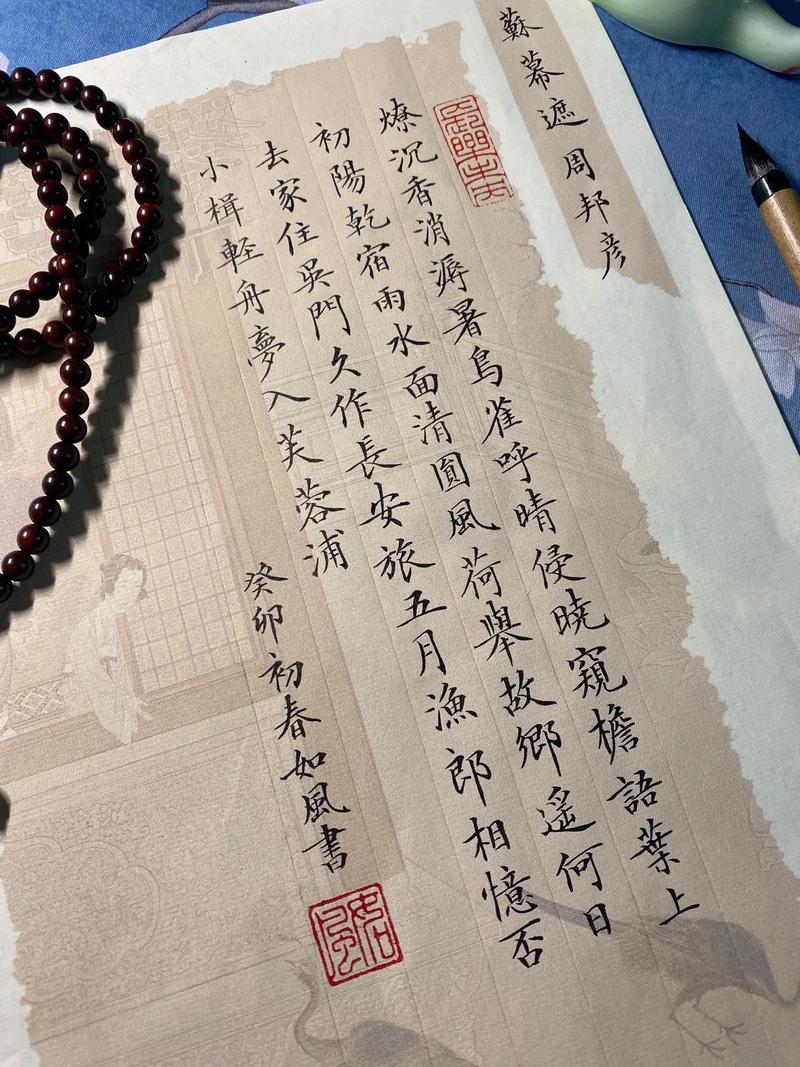 蘇幕遮 周邦彦
長樂未央
燎沉香消溽暑鳥雀呼晴侵曉窺檐語葉上
初陽乾宿雨水面清圓風荷舉故鄉遥何日
去家住吳門久作長安旅五月漁郎相憶否
小楫軽舟夢入芙蓉浦
癸卯初春如風書
如風